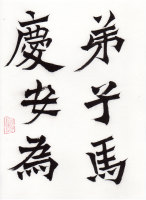 弟子馬
慶安為